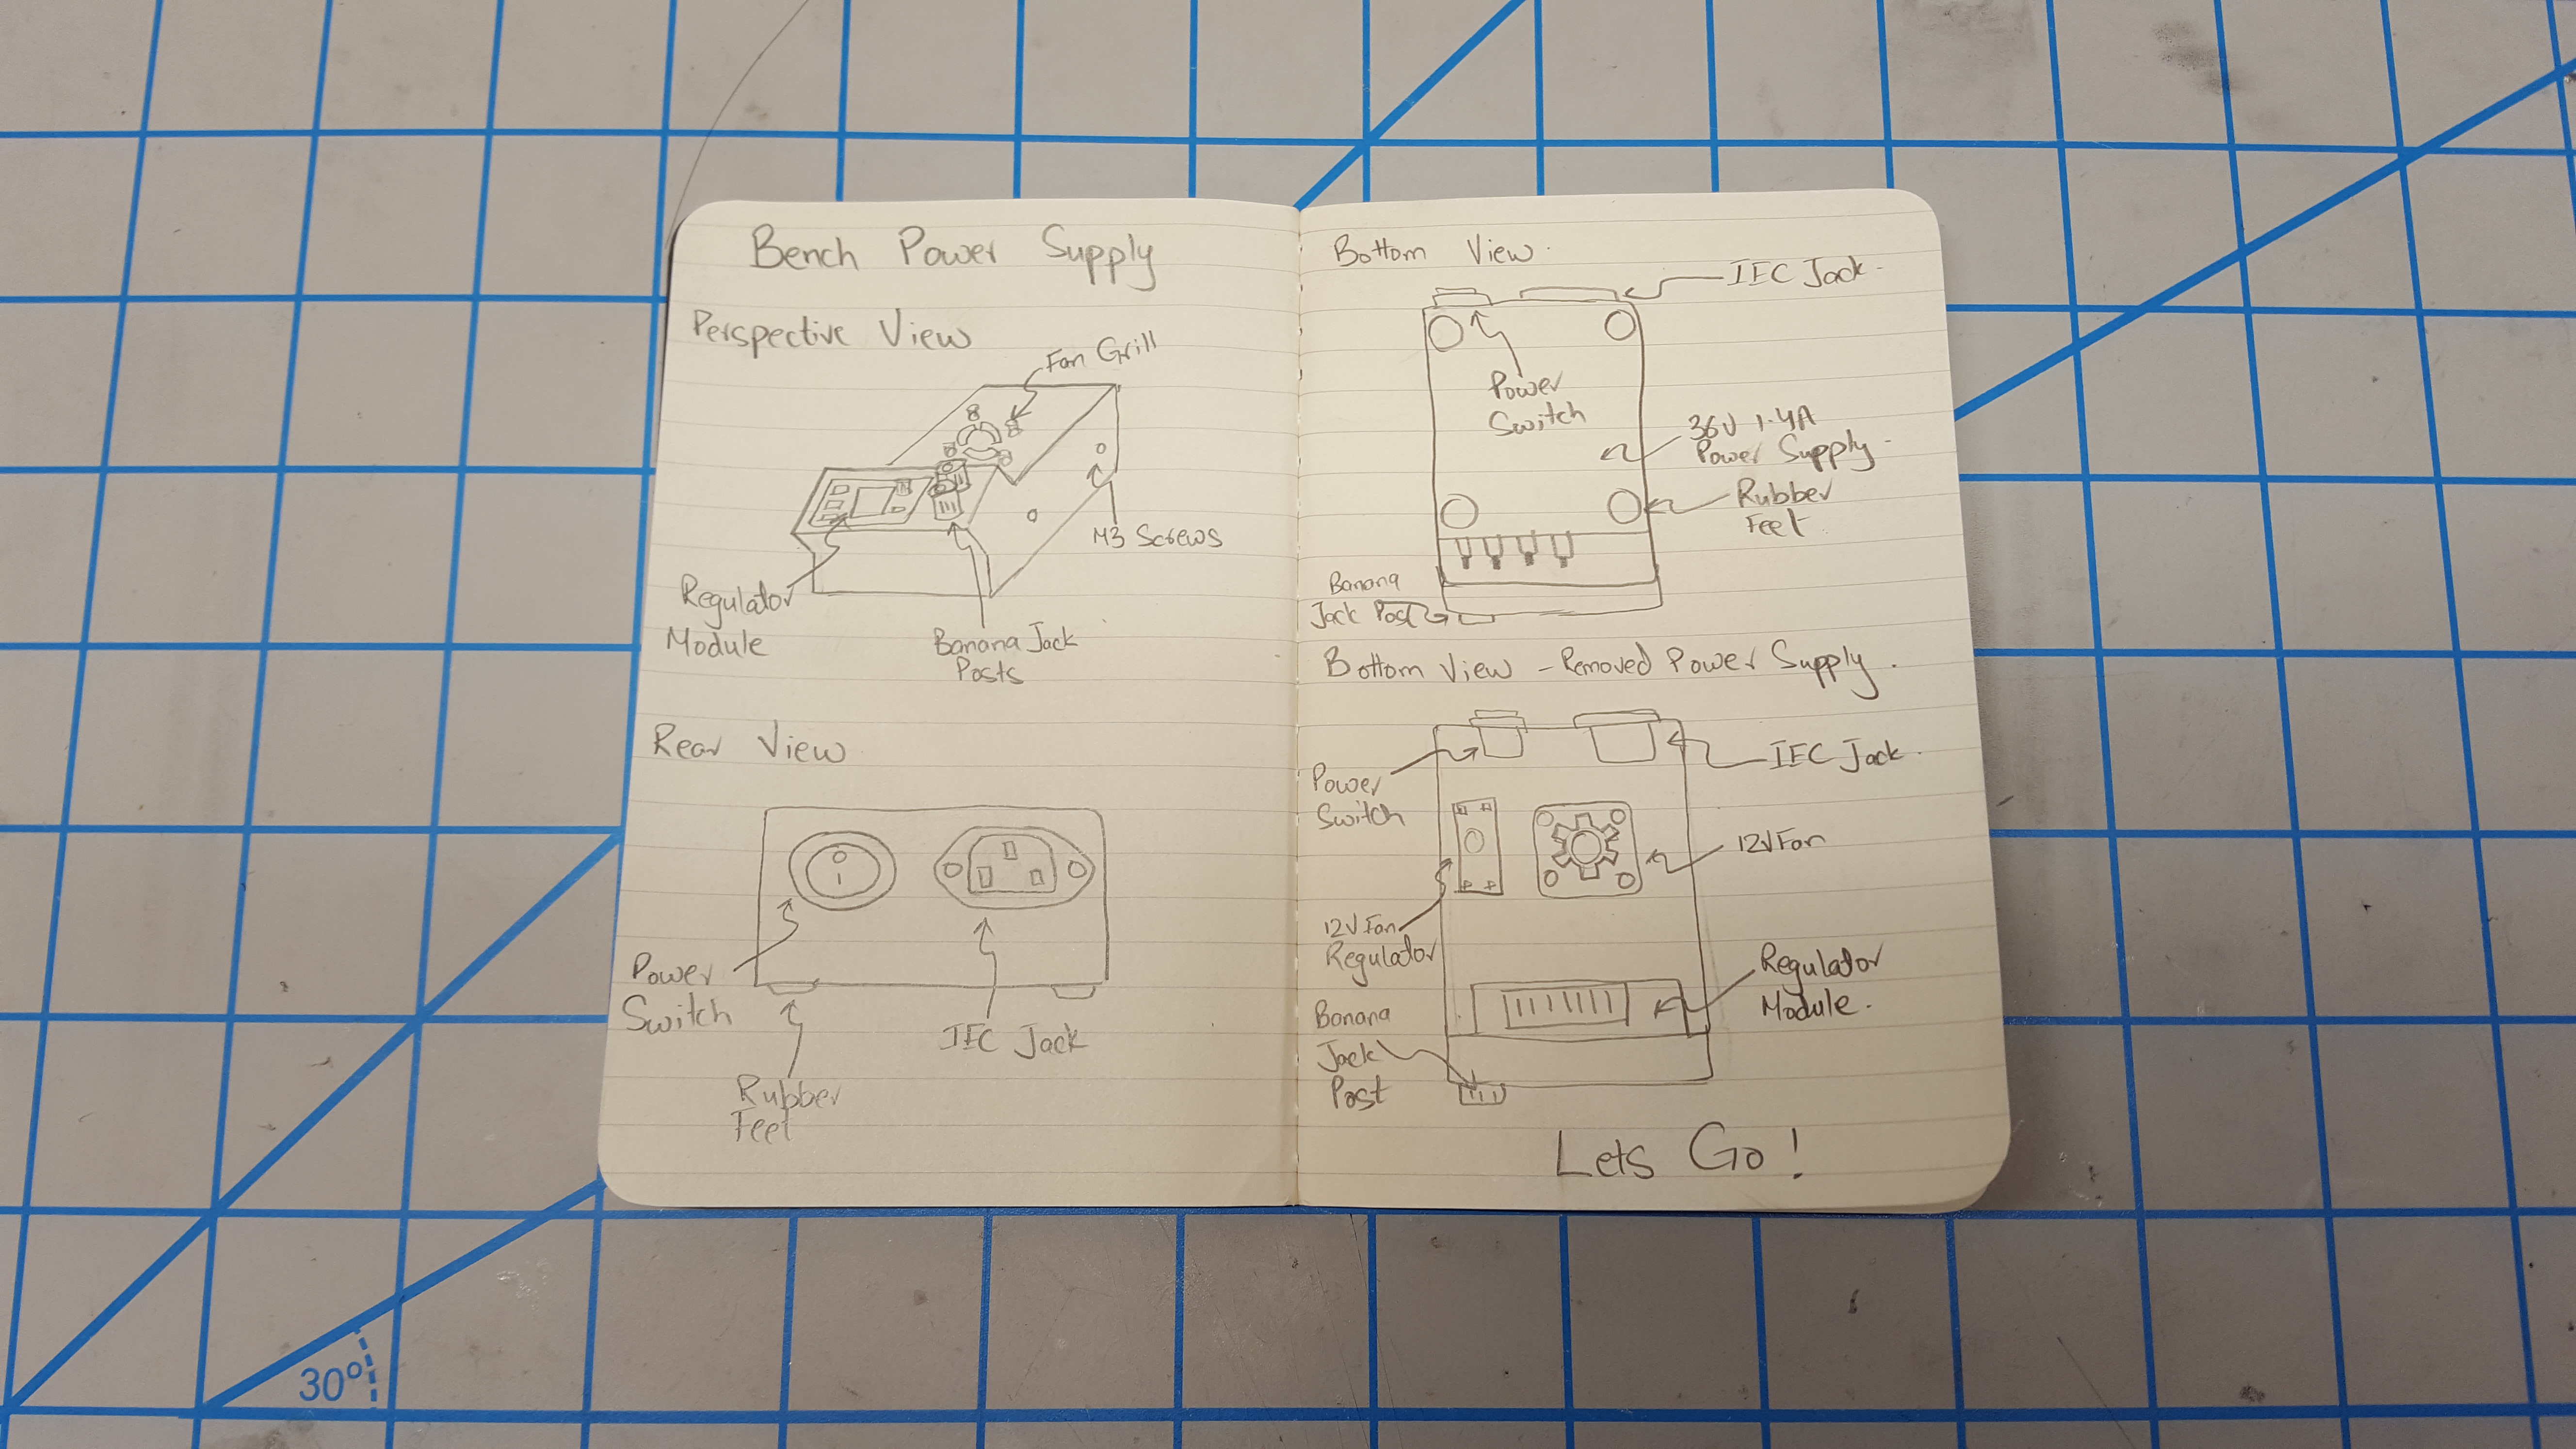 Bench Power Supply
Perspective View
Fan Grill
M3 Screws
Regulator
Module
Banana Jack
Posts
Rear View
Power
Switch
IEC Jack
Rubber
Feet
Bottom View.
IEC Jack.
Power
Switch
36V 1.4A
Power Supply.
Rubber
Feet
Banana
Jack Post
Bottom View - Removed Power Supply.
Power
Switch
IEC Jack.
12V Fan
12V Fan
Regulator
Regulator
Module.
Banana
Jack
Post
Lets Go!
30°